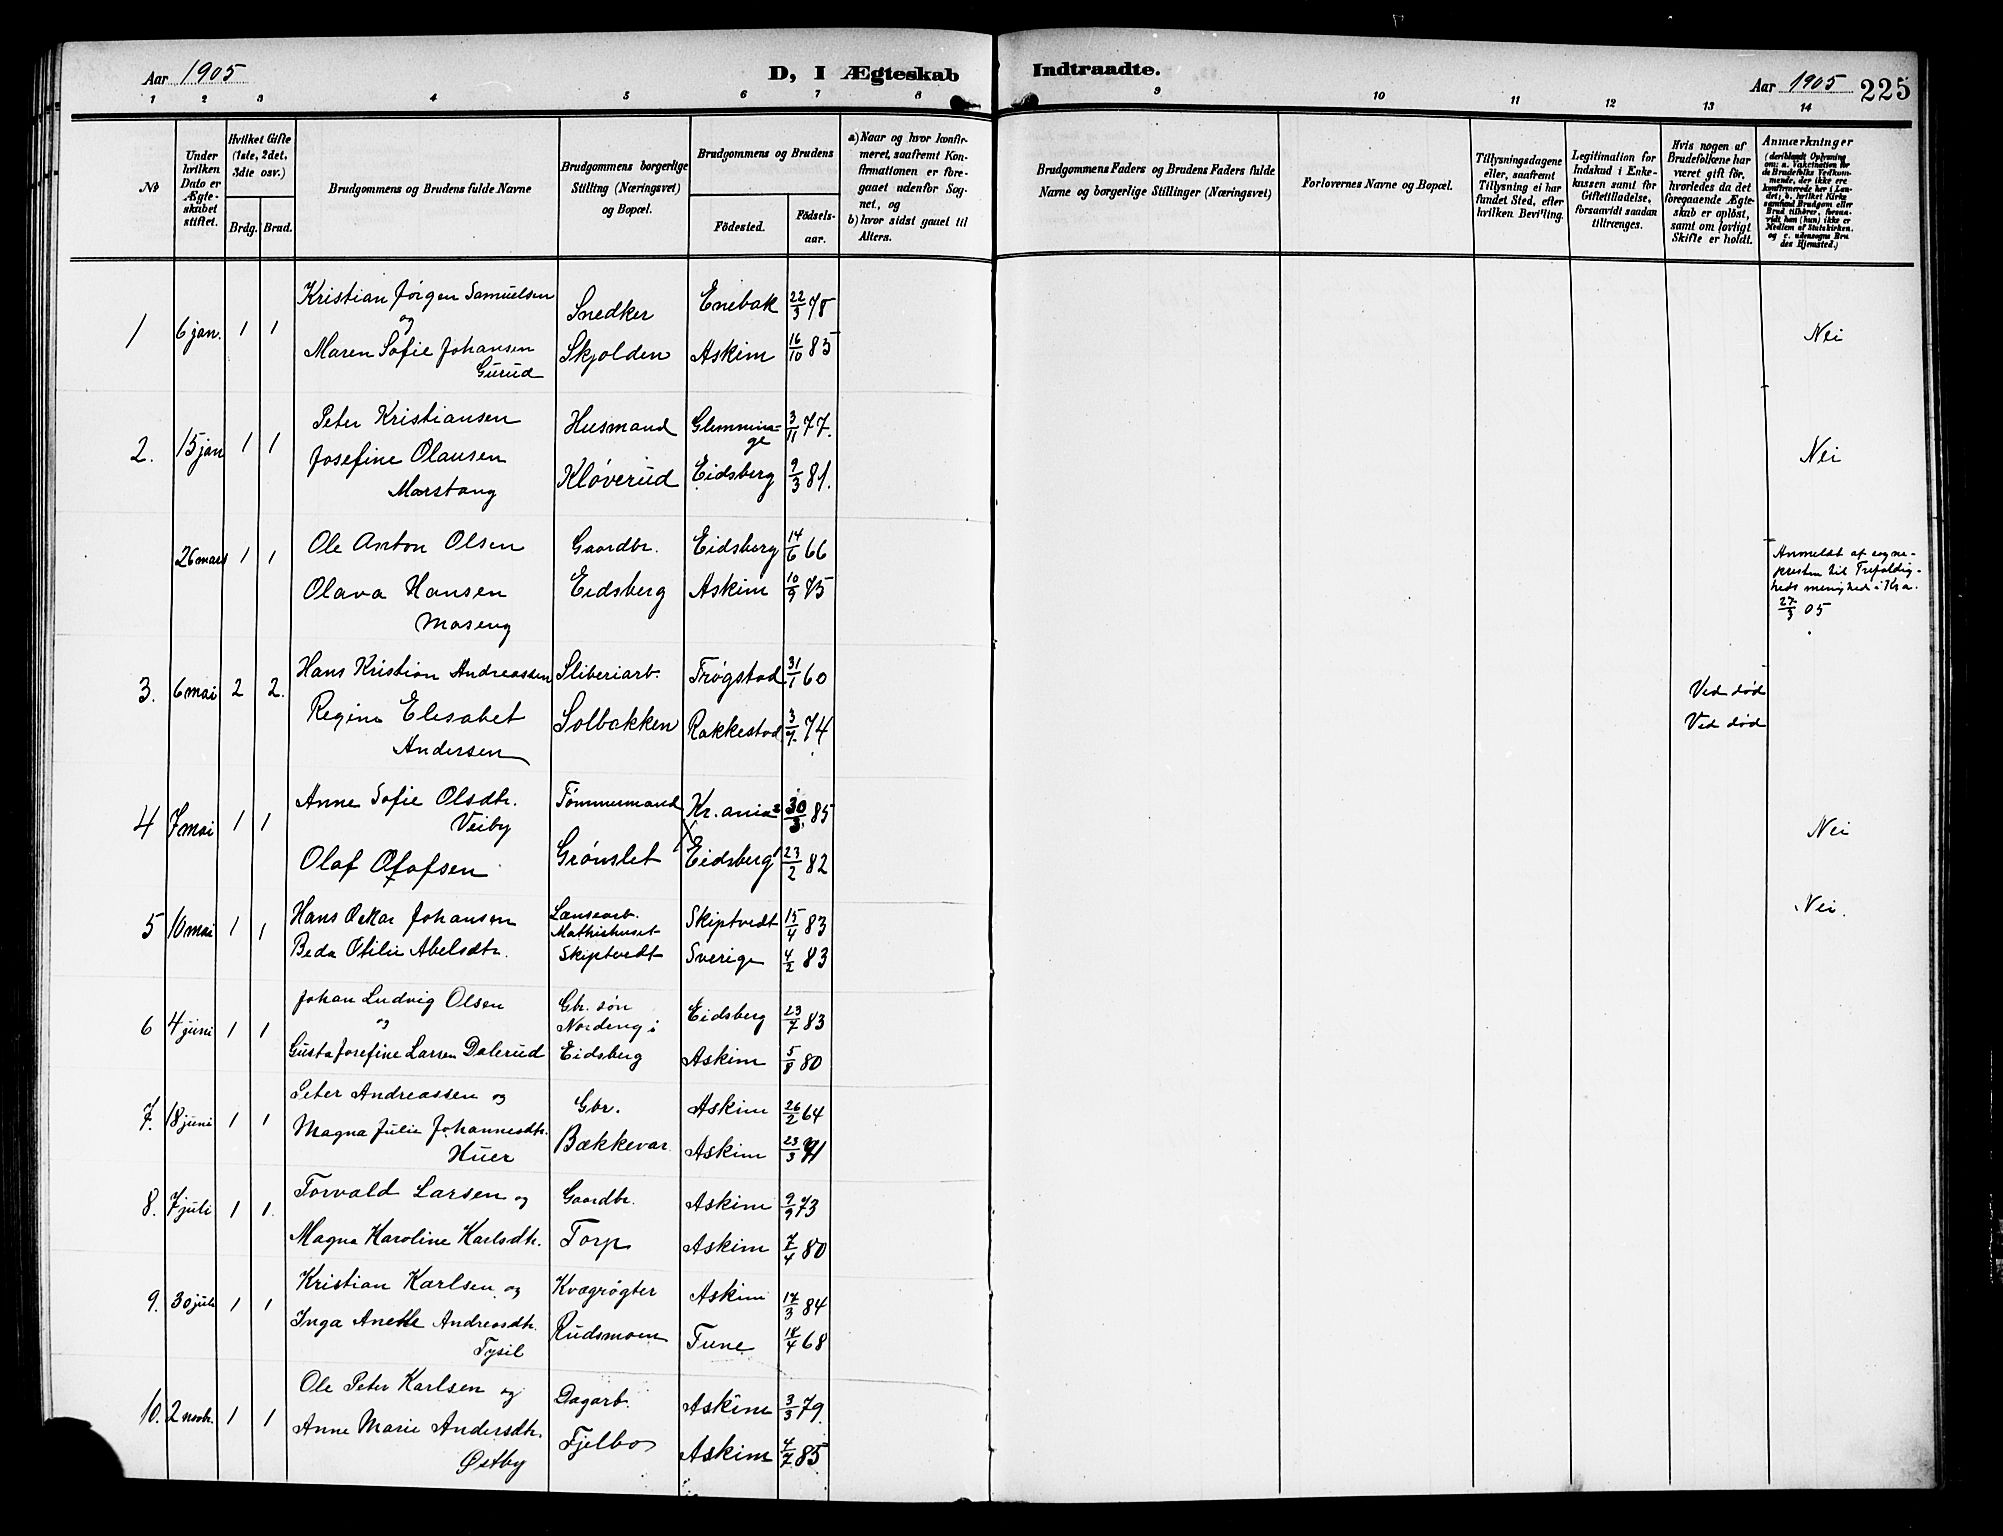 Aar 1905
D, I Ægteskab Indtraadte.
Aar 1905 225
1 2 3 4 5 6 7 8 9 10 11 12 13 14
No
Under hvilken Dato er Ægteskabet stiftet.
Hvilket Gifte (1ste, 2det, 3die osv.)
Brdg. Brud.
Brudgommens og Brudens fulde Navne
Brudgommens borgerlige Stilling (Næringsvei) og Bopæl.
Brudgommens og Brudens
Fødested.
Fødselsaar.
a) Naar og hvor konfirmeret, saafremt Konfirmationen er foregaaet udenfor Sognet, og
b) hvor sidst gaaet til Alters.
Brudgommens Faders og Brudens Faders fulde Navne og borgerlige Stillinger (Næringsvei)
Forlovernes Navne og Bopæl.
Tillysningsdagene eller, saafremt Tillysning ei har fundet Sted, efter hvilken Bevilling.
Legitimation for Indskud i Enkekassen samt for Giftetilladelse, forsaavidt saadan tiltrænges.
Hvis nogen af Brudefolkene har været gift før, hvorledes da det foregaaende Ægteskab er opløst, samt om lovligt Skifte er holdt.
Anmærkninger
(deriblandt Oplysning om: a. Vakcination for de Brudefolks Vedkommende, der ikke ere konfirmerede her i Landet, b. hvilket Kirkesamfund Brudgom eller Brud tilhører, forsaavidt han (hun) ikke er Medlem af Statskirken, og c. udensogns Brudes Hjemsted.)
1 6 jan. 1 1 Kristian Jørgen Samuelsen Snedker Enebak 22/3 78
og
Maren Sofie Johansen Skjolden Askim 16/10 85 Nei
Gurud
2. 15 jan 1 1 Peter Kristiansen Husmand Glemminge 3/11 77.
Josefine Olausen Kløverud Eidsberg 9/3 81. Nei
Marstang
26 mars 1 1 Ole Anton Olsen Gaardbr. Eidsberg 14/6 66
Olava Hansen Eidsberg Askim 10/9 75
Moseng
Anmeldt af sogne-
presten til Trefoldig-
heds menighed i Kra.
27/3 05
3. 6 mai 2 2. Hans Kristian Andreassen Sliberiarb. Trøgstad 31/1 60 Ved død
Regine Elisabet Solbakken Rakkestad 3/7 74 Ved død
Andersen
4 7 mai 1 1 Anne Sofie Olsdtr. Tømmermand Kr.ania 2 30/3 85
Veiby Nei
Olaf Olafsen Grønslet Eidsberg 1 23/2 82
5 10 mai 1 1 Hans Oskar Johansen Lænsearb. Skiptvedt 15/4 83 Nei.
Mathishuset
Beda Otilie Abelsdtr. Skiptvedt Sverige 4/2 83
6 4 juni 1 1 Johan Ludvig Olsen Gbr. søn Eidsberg 23/7 83
og Nordeng i
Gusta Josefine Larsen Dalerud Eidsberg Askim 5/8 80
7. 18 juni 1 1 Peter Andreassen og Gbr. Askim 26/2 64
Magna Julie Johannesdtr. Bækkevar Askim 23/3
Huer
8. 7 juli 1 1. Torvald Larsen og Gaardbr. Askim 9/9 73
Magna Karoline Karlsdtr. Torp Askim 7/4 80
9. 30 juli 1 1 Kristian Karlsen og Kvægrøgter Askim 17/3 84
Inga Anette Andreasdtr. Rudsmoen Tune 18/4 68
Tysil
10. 2 novbr. 1 1 Ole Peter Karlsen og Dagarb. Askim 3/3 79.
Anne Marie Andersdtr. Fjelbo Askim 4/7 85
Østby